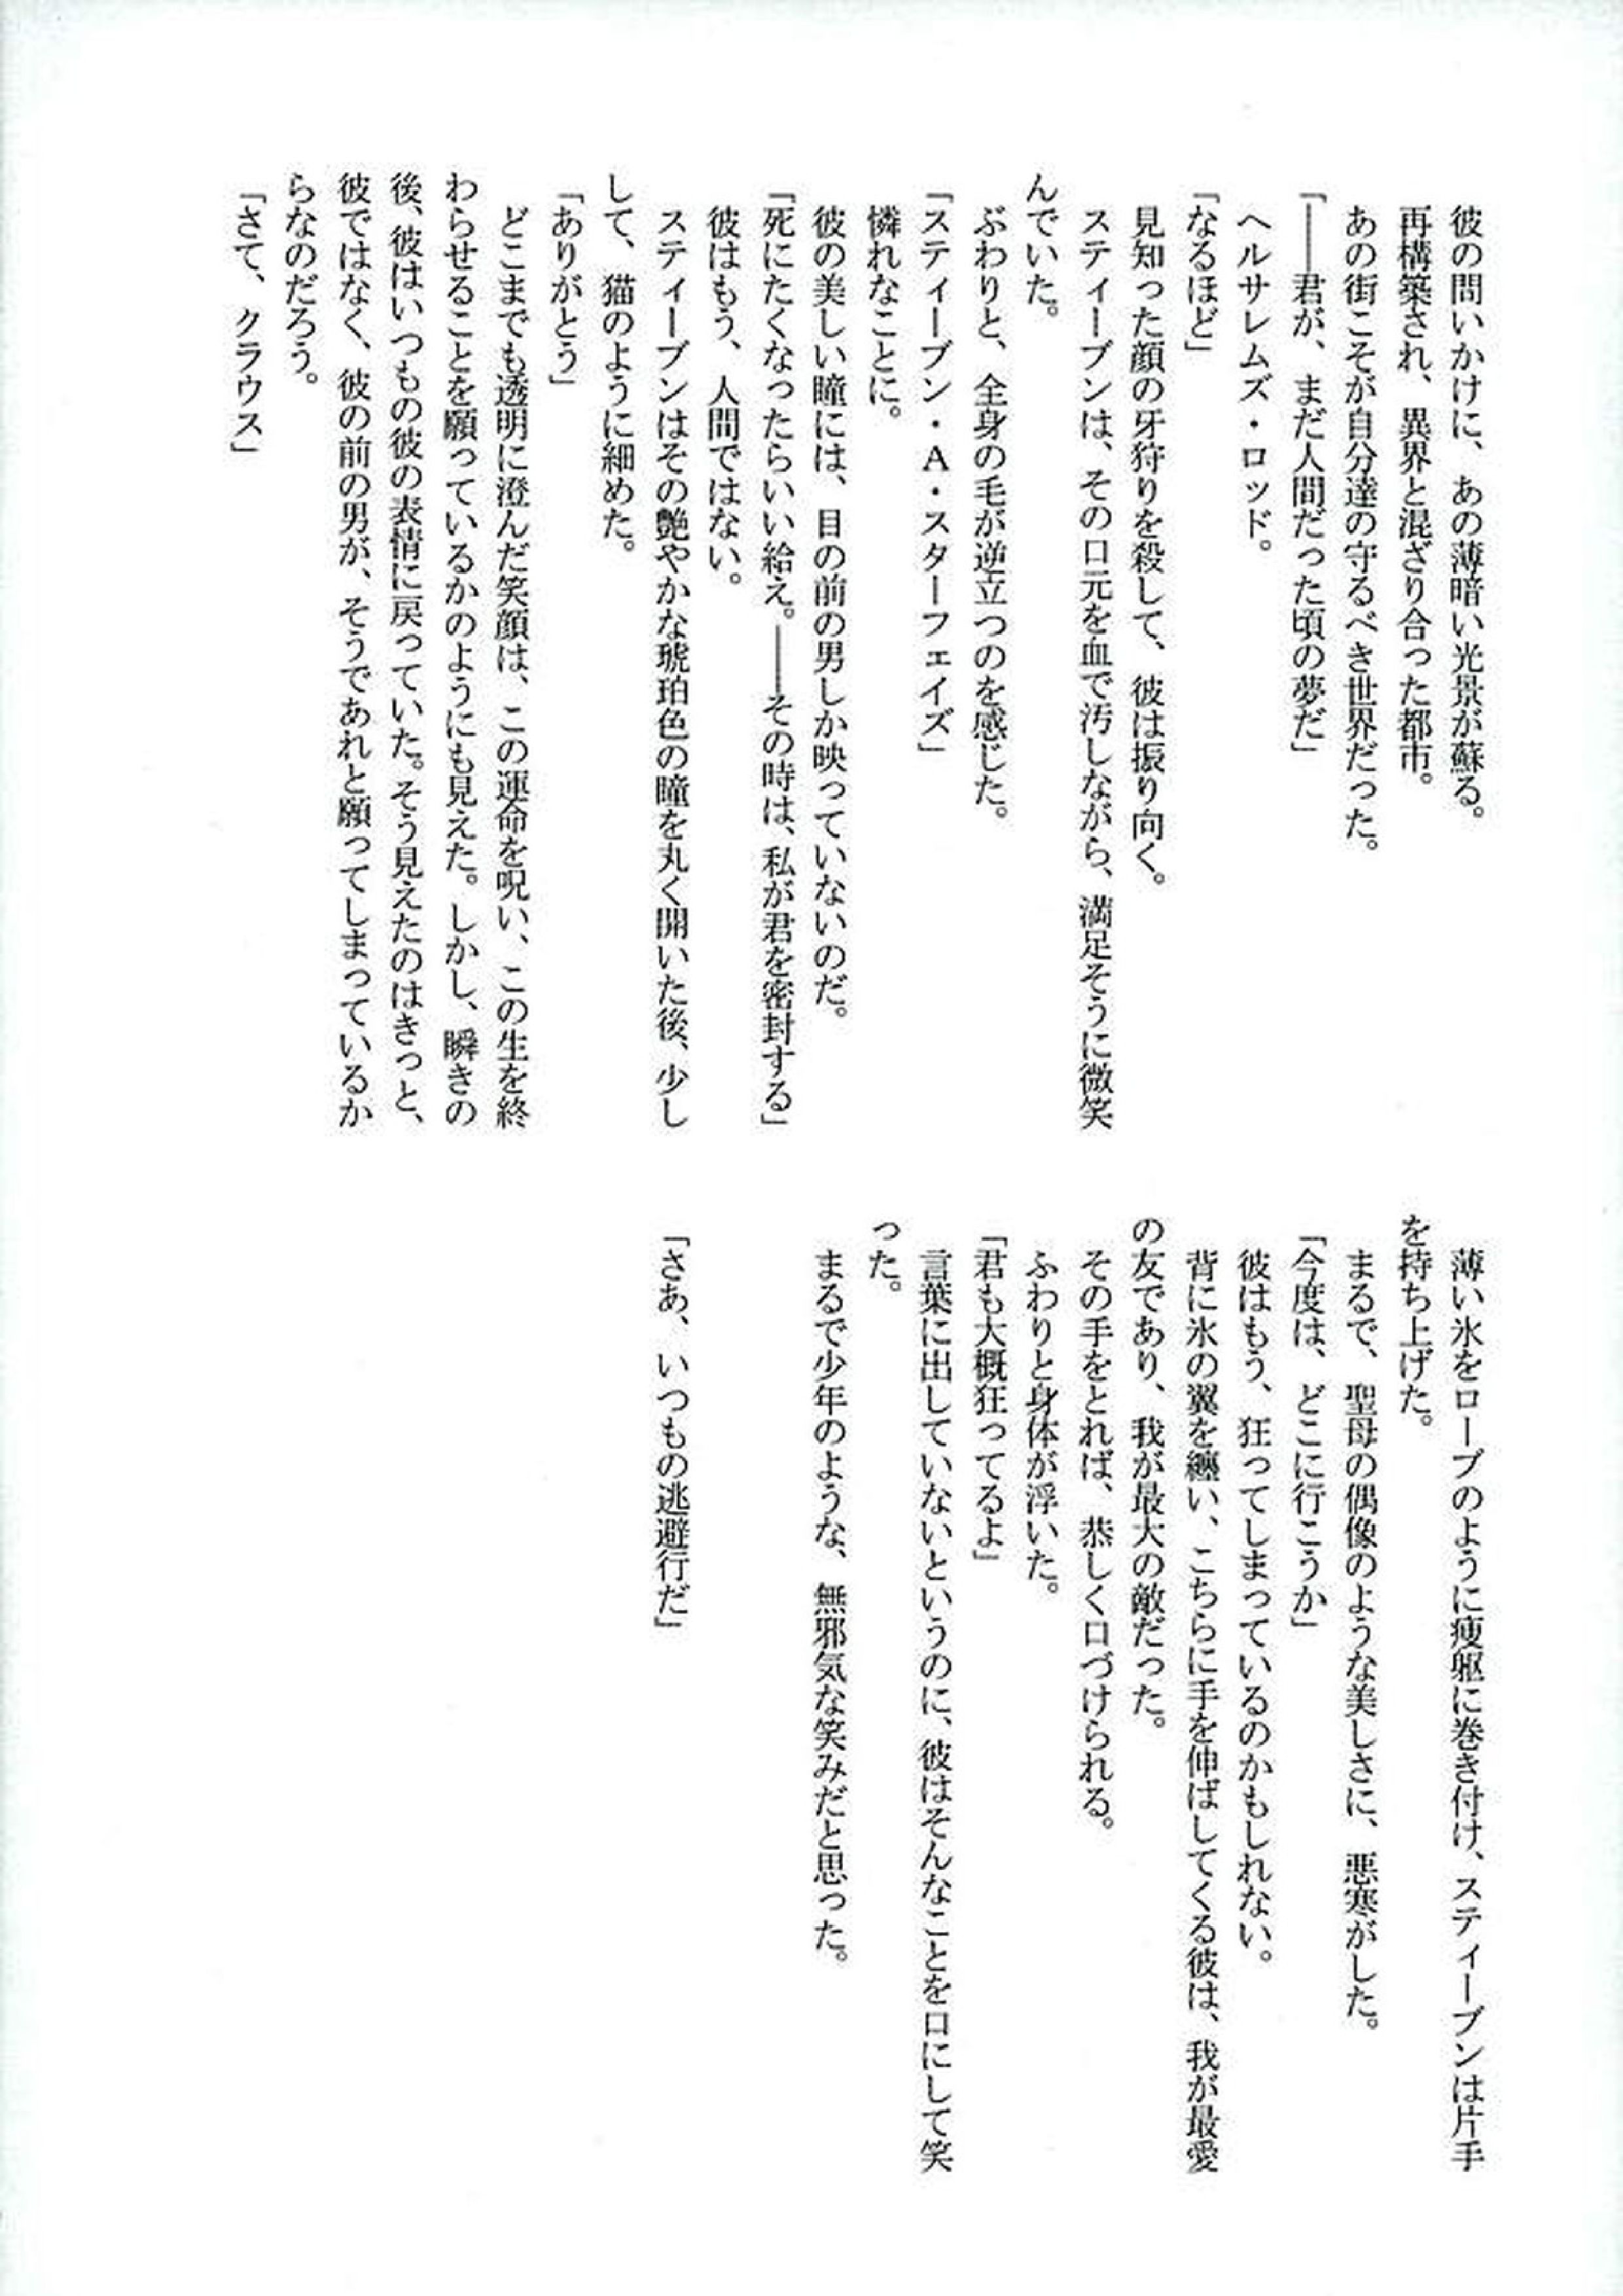 彼の問いかけに、あの薄暗い光景が蘇る。
再構築され、異界と混ざり合った都市。
あの街こそが自分達の守るべき世界だった。
「――君が、まだ人間だった頃の夢だ」
ヘルサレムズ・ロッド。
「なるほど」
見知った顔の牙狩りを殺して、彼は振り向く。
スティーブンは、その口元を血で汚しながら、満足そうに微笑
んでいた。
ぶわりと、全身の毛が逆立つのを感じた。
「スティーブン・A・スターフェイズ」
憐れなことに。
彼の美しい瞳には、目の前の男しか映っていないのだ。
「死にたくなったらいい給え。――その時は、私が君を密封する」
彼はもう、人間ではない。
スティーブンはその艶やかな琥珀色の瞳を丸く開いた後、少し
して、猫のように細めた。
「ありがとう」
どこまでも透明に澄んだ笑顔は、この運命を呪い、この生を終
わらせることを願っているかのようにも見えた。しかし、瞬きの
後、彼はいつもの彼の表情に戻っていた。そう見えたのはきっと、
彼ではなく、彼の前の男が、そうであれと願ってしまっているか
らなのだろう。
「さて、クラウス」
薄い氷をロープのように痩躯に巻き付け、スティーブンは片手
を持ち上げた。
まるで、聖母の偶像のような美しさに、悪寒がした。
「今度は、どこに行こうか」
彼はもう、狂ってしまっているのかもしれない。
背に氷の翼を纏い、こちらに手を伸ばしてくる彼は、我が最愛
の友であり、我が最大の敵だった。
その手をとれば、恭しく口づけられる。
ふわりと身体が浮いた。
「君も大概狂ってるよ」
言葉に出していないというのに、彼はそんなことを口にして笑
った。
まるで少年のような、無邪気な笑みだと思った。
「さあ、いつもの逃避行だ」